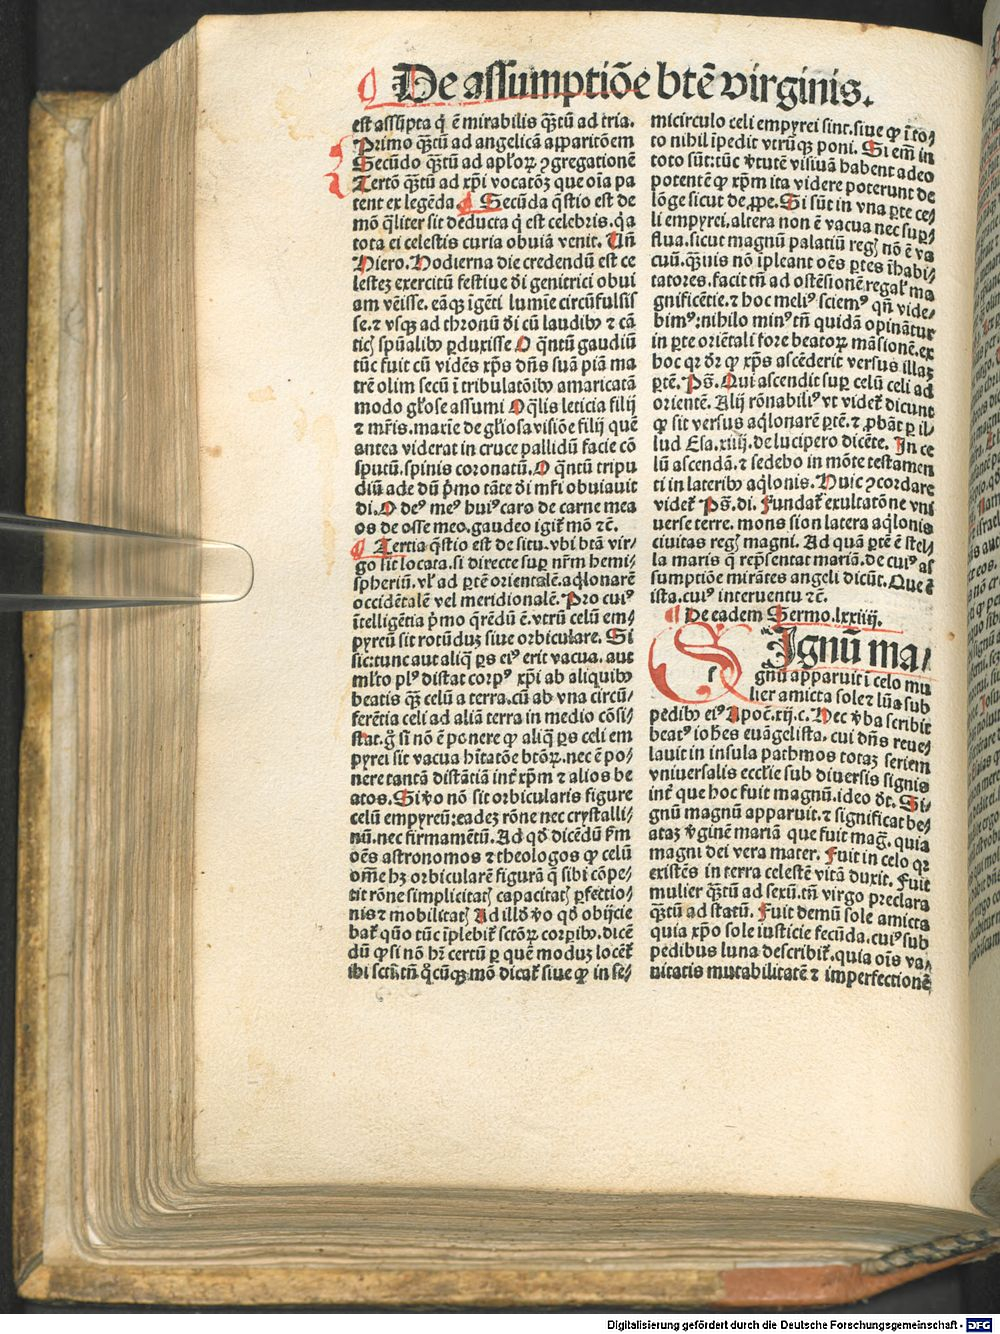 De assumptiõe btẽ virginis.
est assũpta q̃ ẽ mirabilis q̃tũ ad tria.
Primo q̃tũ ad angelicã apparitõem
Secũdo q̃tũ ad aplˀoꝝ ꝯgregationẽ
Tertõ q̃tũ ad xp̃i vocatõꝫ que oĩa pa
tent ex legẽda. Secũda q̃stio est de
mõ q̃liter sit deducta q̃ est celebris. q̃a
tota ei celestis curia obuiã venit. Uñ
Hiero. Hodierna die credendũ est ce
lesteꝫ exercitũ festiue di genitrici obui
am vẽisse. eãqꝫ ĩgẽti lumĩe circũfulsis
se. ⁊ vsqꝫ ad thronũ di cũ laudibꝰ ⁊ cã
ticꝭ spũalibꝰ ꝑduxisse O q̃ntũ gaudiũ
tũc fuit cũ vidẽs xp̃s dñs suã piã ma
trẽ olim secũ ĩ tribulatõibꝰ amaricatã
modo glˀose assumi O q̃lis leticia filij
⁊ mr̃is. marie de glˀiosa visiõe filij quẽ
antea viderat in cruce pallidũ facie cõ
sputũ. spinis coronatũ. O q̃ntũ tripu
diũ ade dũ p̃mo tãte di mr̃i obuiauit
di. O deꝰ meꝰ huiꝰ caro de carne mea
os de osse meo. gaudeo igit᷑ mõ ⁊c̃.
Tertia q̃stio est de situ. vbi btã vir⸗
go sit locata. si directe suꝑ nr̃m hemi⸗
spheriũ. vl᷑ ad ꝑtẽ orientalẽ. aq̃lonarẽ
occidẽtalẽ vel meridionalẽ. Pro cuiꝰ
ĩtelligẽtia p̃mo q̃rẽdũ ẽ. vtrũ celũ em⸗
pyreũ sit rotũduꝫ siue orbiculare. Si
sic: tunc aut aliq̃ ꝑs eiꝰ erit vacua. aut
ml᷑to plꝰ distat corpꝰ xp̃i ab aliquibꝰ
beatis qꝫ celũ a terra. cũ ab vna circũ⸗
ferẽtia celi ad aliã terra in medio cõsi⸗
stat. g̊ si nõ ẽ ponere ꝙ aliq̃ ꝑs celi em
pyrei sit vacua hĩtatõe btõꝝ. nec ẽ po⸗
nere tantã distãtiã int᷑ xp̃m ⁊ alios be
atos. Si v̊o nõ sit orbicularis figure
celũ empyreũ: eadeꝫ rõne nec crystalli⸗
nũ. nec firmamẽtũ. Ad qd̊ dicẽdũ ẜm
oẽs astronomos ⁊ theologos ꝙ celũ
om̃e hꝫ orbicularẽ figurã q̃ sibi cõpe⸗
tit rõne simplicitatꝭ capacitatꝭ ꝑfectio⸗
nis ⁊ mobilitatꝭ Ad illd̊ v̊o qd̊ obijcie
bat᷑ quõ tũc ĩplebit᷑ sctõꝝ corpibꝰ. dicẽ
dũ ꝙ si nõ hr̃ certũ ꝑ quẽ moduꝫ locẽt᷑
ibi sctĩ. tñ q̊cũqꝫ mõ dicat᷑ siue ꝙ in se⸗
micirculo celi empyrei sint. siue ꝙ ĩ to⸗
to nihil ĩpedit vtrũqꝫ poni. Si em̃ in
toto sũt: tũc ꝟtutẽ visiuã habent adeo
potentẽ ꝙ xp̃m ita videre poterunt de
lõge sicut de ꝓpe. Si sũt in vna ꝑte ce⸗
li empyrei. altera non ẽ vacua nec suꝑ⸗
flua. sicut magnũ palatiũ regꝭ nõ ẽ va
cuũ. q̃uis nõ ĩpleant oẽs ꝑtes ĩhabi⸗
tatores. facit tñ ad ostẽsionẽ regalˀ ma
gnificẽtie. ⁊ hoc meliꝰ sciemꝰ qñ vide⸗
bimꝰ: nihilo minꝰ tñ quidã opinãtur
in ꝑte oriẽtali fore beatoꝝ mãsionẽ. ex
hoc qꝛ dr̃ ꝙ xp̃s ascẽderit versus illaꝫ
ꝑtẽ. Ps̃. Qui ascendit suꝑ celũ celi ad
orientẽ. Alij rõnabiliꝰ vt videt᷑ dicunt
ꝙ sit versus aq̃lonarẽ ꝑtẽ. ⁊ ꝓbãt ꝑ il⸗
lud Esa. xiiij. de lucipero dicẽte. In ce
lũ ascendã. ⁊ sedebo in mõte testamen
ti in lateribꝰ aq̃lonis. Huic ꝯcordare
videt᷑ Ps̃. di. Fundat᷑ exultatõne vni
uerse terre. mons sion latera aq̃lonis
ciuitas regꝭ magni. Ad quã ꝑtẽ ẽ stel⸗
la maris q̃ rep̃sentat mariã. de cuiꝰ as
sumptiõe mirãtes angeli dicũt. Que ẽ
ista. cuiꝰ interuentu ⁊c̃.
De eadem Sermo. lxxiiij.
SIgnũ ma⸗
gnũ apparuit ĩ celo mu
lier amicta sole ⁊ lũa sub
pedibꝰ eiꝰ Apoc̃. xij. c. Hec ꝟba scribit
beatꝰ iohẽs euãgelista. cui dñs reue⸗
lauit in insula pathmos totaꝫ seriem
vniuersalis eccl̃ie sub diuersis signis
int᷑ que hoc fuit magnũ. ideo dt̃. Si⸗
gnũ magnũ apparuit. ⁊ significat be⸗
ataꝫ ꝟginẽ mariã que fuit mag̃. quia
magni dei vera mater. Fuit in celo qꝛ
existẽs in terra celestẽ vitã duxit. Fuit
mulier q̃tũ ad sexũ. tñ virgo preclara
q̃tũ ad statũ. Fuit demũ sole amicta
quia xp̃o sole iusticie fecũda. cuiꝰ sub
pedibus luna describit᷑. quia oĩs va⸗
nitatis mutabilitatẽ ⁊ imperfectionẽ
Digitalisierung gefördert durch die Deutsche Forschungsgemeinschaft - DFG